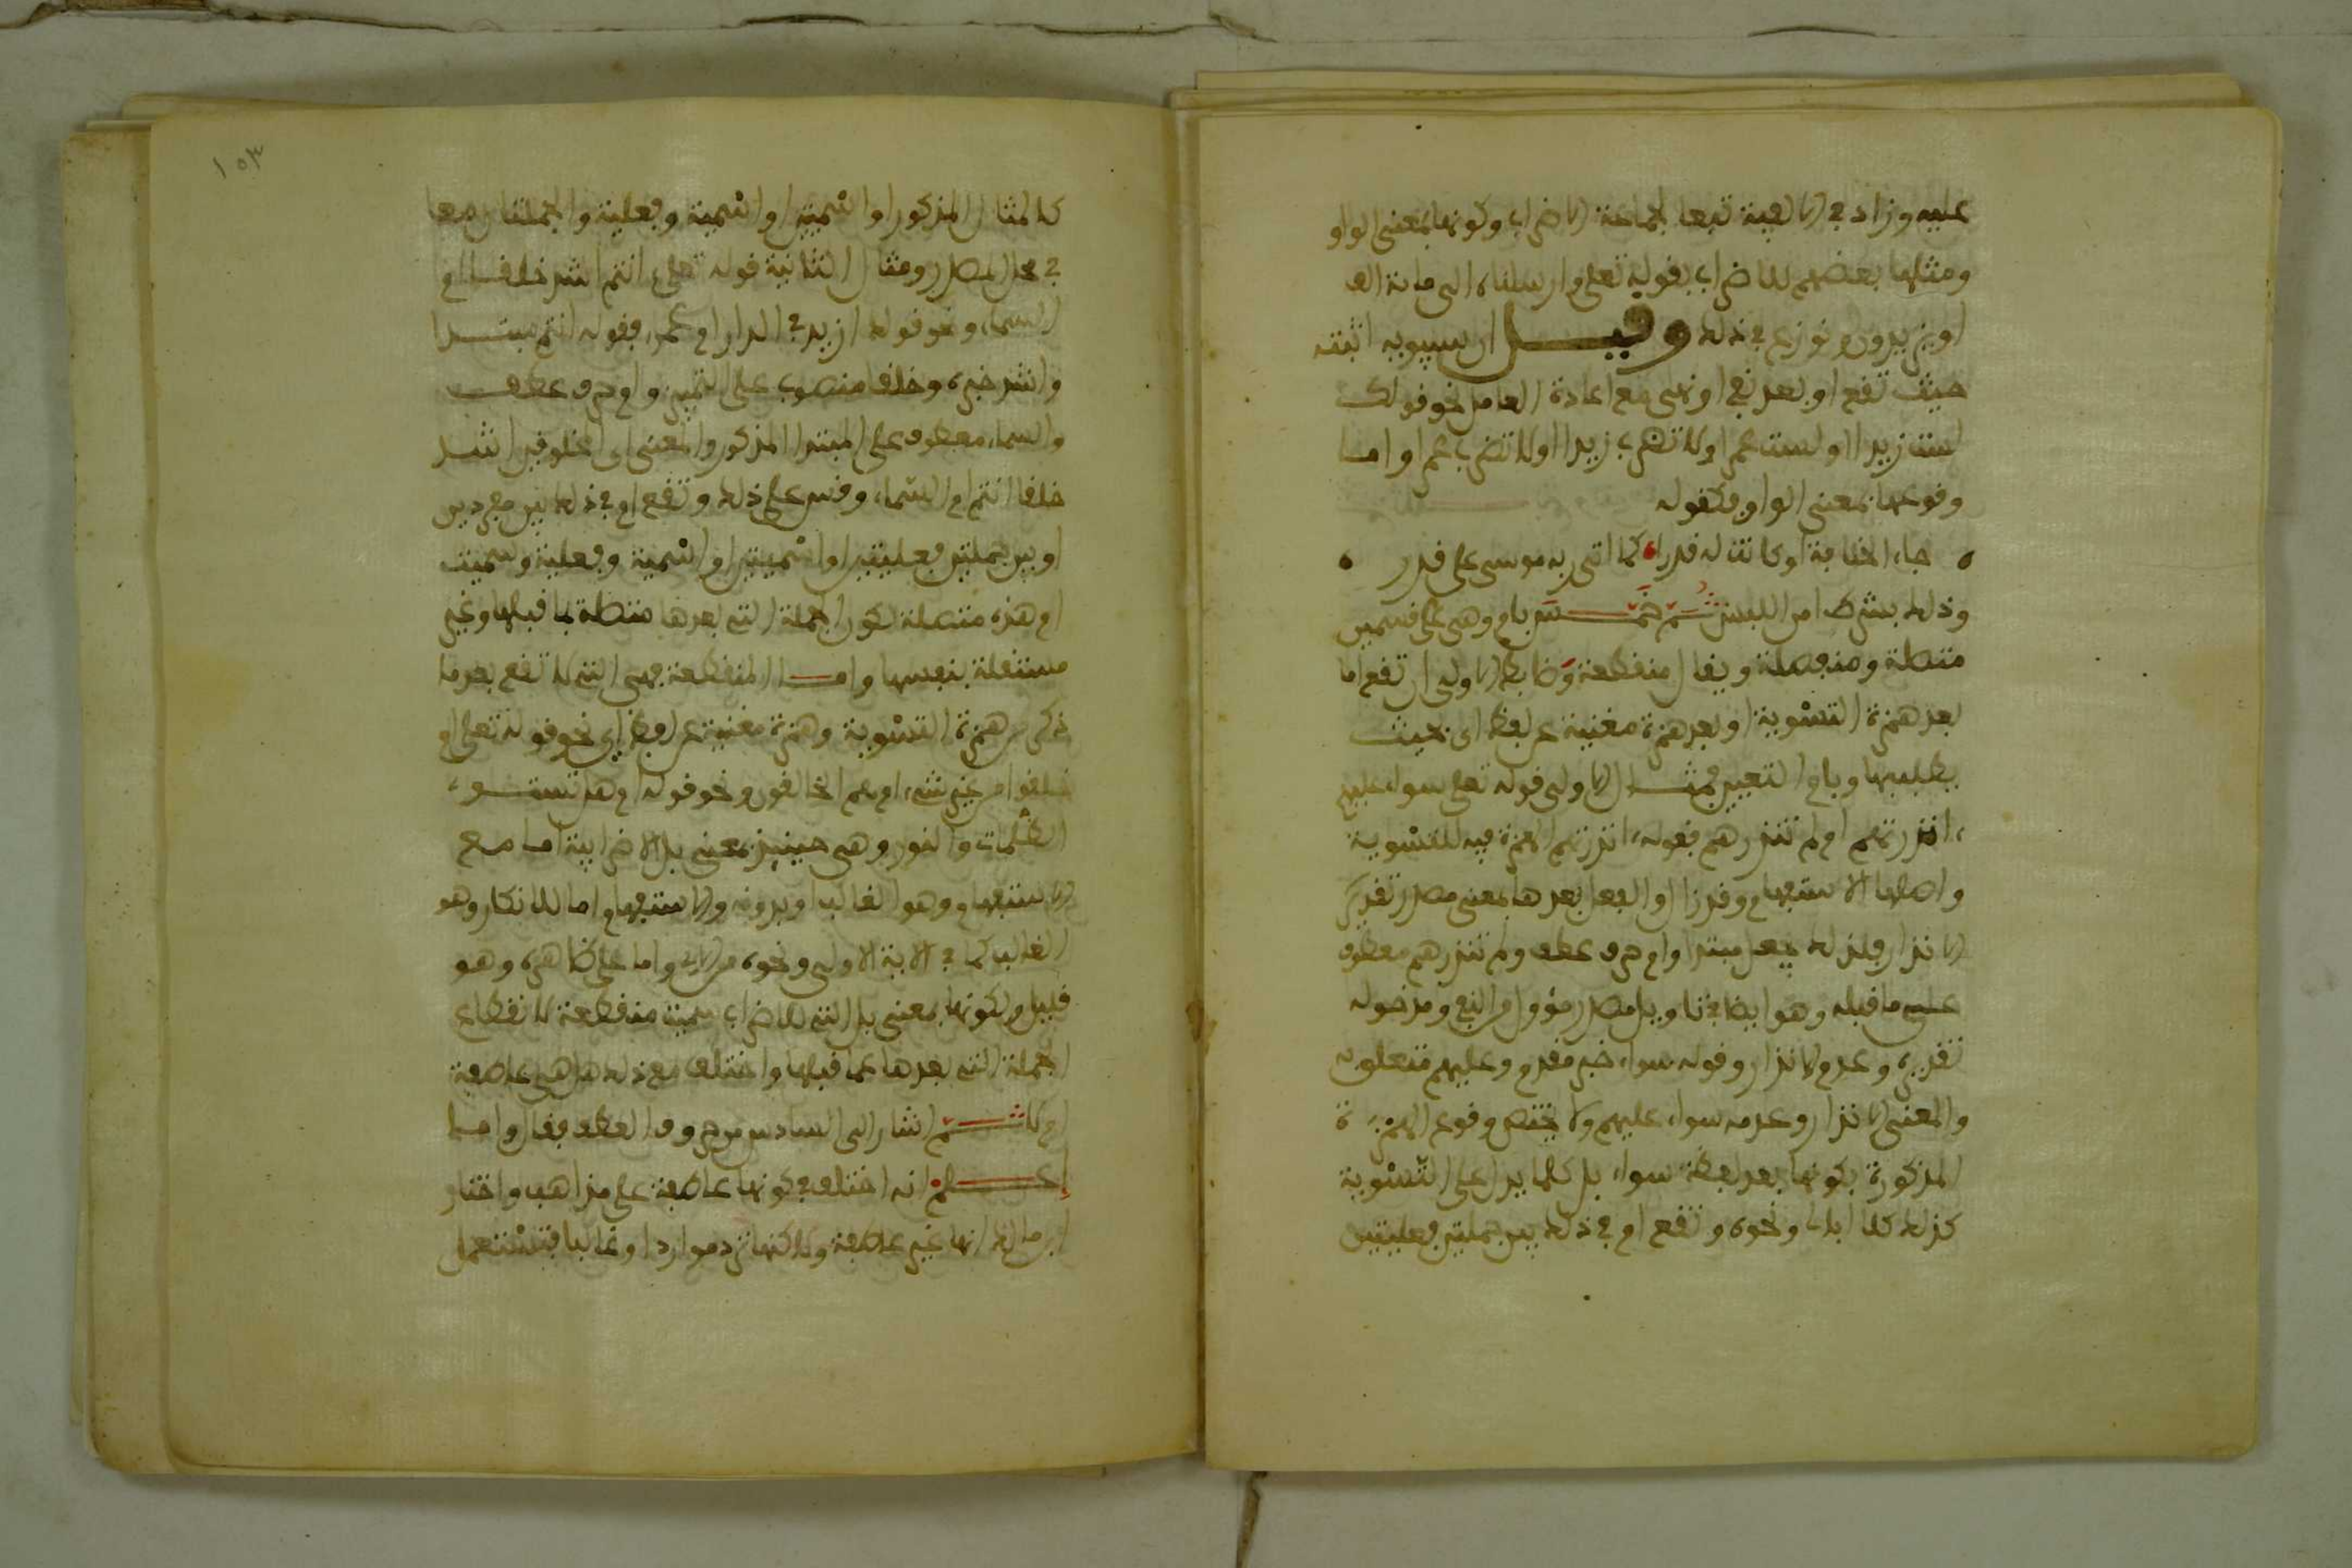 عليه وزاد في الالفية تبعا لجماعة الاضراب وكونها بمعنى الواو
ومثلها بعضهم للاضراب بقوله تعلى وارسلناه الى ماية الف
او يزيدون ونوزع في ذلك وقيل ان سيبويه اثبته
حيث تقع او بعد نفي او نهي مع اعادة العامل نحو قولك
لست زيدا او لست عمرا ولا تضرب زيدا اولا تضرب عمرا واما
وقوعها بمعنى الواو فكقوله
جاء الخلافة او كانت له قدرا كما اتى ربه موسى على قدر
وذلك بشرط امن اللبس ثم خمس بام وهي على قسمين
متصلة ومنفصلة ويقال منقطعة وضابط الاولى ان تقع اما
بعد همزة التسوية او بعد همزة مغنية عن لفظ اي بحيث
يطلب بها وبام التعيين فمثال الاولى قوله تعلى سواء عليهم
ءانذرتهم ام لم تنذرهم فقوله ءانذرتهم الهمزة فيه للتسوية
واصلها الاستفهام وقد زال والفعل بعدها بمعنى مصدر تقديره
الانذار فلذلك يجعل مبتدا وام حرف عطف ولم تنذرهم معطوف
على ما قبله وهو ايضا في تاويل مصدر مؤول من النفي ومدخوله
تقديره وعدم الانذار وقوله سواء خبر مقدم وعليهم متعلق به
والمعنى الانذار وعدمه سواء عليهم ولا يختص وقوع الهمزة
المذكورة بكونها بعد لفظة سواء بل كلما يدل على التسوية
كذلك كلا ابالي ونحوه وتقع ام في ذلك بين جملتين فعليتين
١٥٣
كالمثال المذكور او اسميتين او اسمية وفعلية والجملتان معا
في محل المصدر ومثال الثانية قوله تعلى ءانتم اشد خلقا ام
السماء ونحو قولك ازيد في الدار ام عمر فقوله انتم مبتدا
واشد خبره وخلقا منصوب على التمييز وام حرف عطف
والسماء معطوف على المبتدا المذكور والمعنى اي المخلوقين اشد
خلقا انتم ام السماء وقس على ذلك وتقع ام في ذلك بين مفردين
او بين جملتين فعليتين او اسميتين او اسمية وفعلية وسميت
ام هذه متصلة لكون الجملة التي بعدها متصلة بما قبلها وغير
مستقلة بنفسها واما المنقطعة فهي التي لا تقع بعد ما
ذكر من همزة التسوية وهمزة مغنية عن لفظ اي نحو قوله تعلى ام
خلقوا من غير شيء ام هم الخالقون ونحو قوله ام هل تستوي
الظلمات والنور وهي حينئذ بمعنى بل الاضرابية اما مع
الاستفهام وهو الغالب او بدونه والاستفهام اما للانكار وهو
الغالب كما في الاية الاولى ونحوه واما على ظاهره وهو
قليل ولكونها بمعنى بل التي للاضراب سميت منقطعة لانقطاع
الجملة التي بعدها عما قبلها واختلف مع ذلك هل هي عاطفة
ام لا ثم اشار الى السادس من حروف العطف فقال واما
اعلم انه اختلف في كونها عاطفة على مذاهب واختار
ابن مالك انها غير عاطفة ولاكنها ترد موارد او غالبا فتستعمل